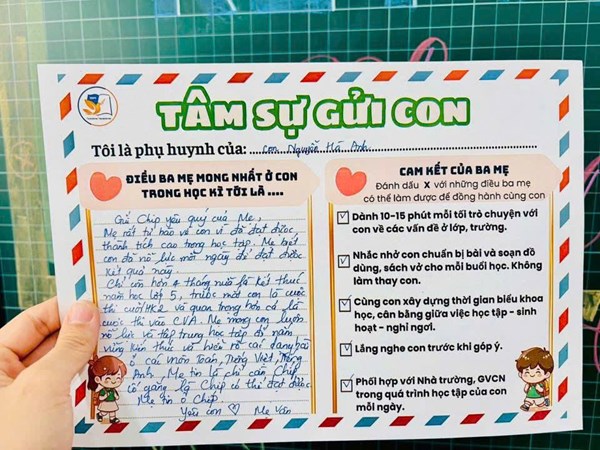 TÂM SỰ GỬI CON
Tôi là phụ huynh của: con Nguyễn Hà Anh
ĐIỀU BA MẸ MONG NHẤT Ở CON
TRONG HỌC KÌ TỚI LÀ ....
Gửi Chip yêu quý của Mẹ,
Mẹ rất tự hào về con vì đã đạt được
thành tích cao trong học tập. Mẹ biết
con đã nỗ lực mỗi ngày để đạt được
kết quả này.
Chỉ còn hơn 4 tháng nữa là kết thúc
năm học lớp 5, trước mắt con là cuộc
thi cuối HK2 và quan trọng hơn cả là
cuộc thi vào CVA. Mẹ mong con luôn
nỗ lực và tập trung học tập để nắm
vững kiến thức và hiểu rõ các dạng bài
ở các môn Toán, Tiếng Việt, Tiếng
Anh. Mẹ tin là chỉ cần Chip
cố gắng là Chip có thể đạt được.
Mẹ tin ở Chip.
Yêu con Mẹ Vân
CAM KẾT CỦA BA MẸ
Đánh dấu X với những điều ba mẹ
có thể làm được để đồng hành cùng con
Dành 10-15 phút mỗi tối trò chuyện với
con về các vấn đề ở lớp, trường.
Nhắc nhở con chuẩn bị bài và soạn đồ
dùng, sách vở cho mỗi buổi học. Không
làm thay con.
Cùng con xây dựng thời gian biểu khoa
học, cân bằng giữa việc học tập - sinh
hoạt - nghỉ ngơi.
Lắng nghe con trước khi góp ý.
Phối hợp với Nhà trường, GVCN
trong quá trình học tập của con
mỗi ngày.